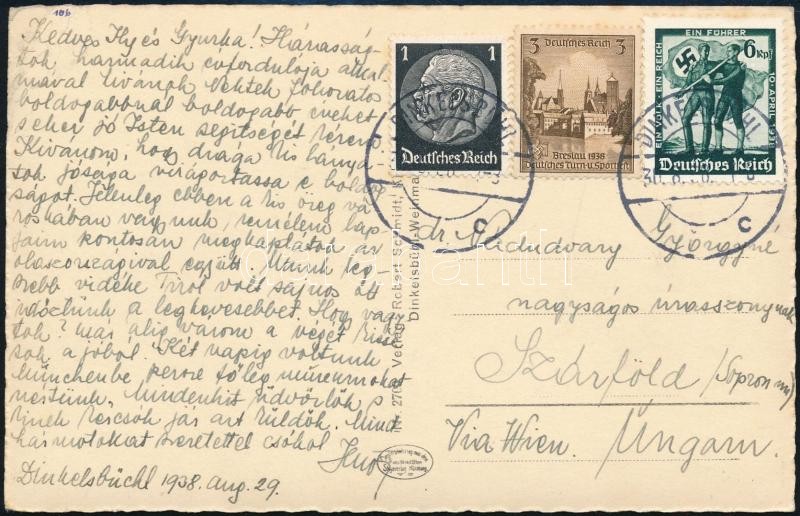 106
Kedves Ily és Gyurka! Házassá-
tok harmadik évfordulója alkal-
mával kívánok Nektek
boldogabbnál boldogabb éveket
jó Isten segítségét kérem.
Kívánom, hogy drága kis lányá-
tok jósága virágoztassa e boldog-
ságot. Jelenleg ebben a kis öreg vá-
roskában vagyunk, remélem lap-
jaim megkaptátok az
olaszországival együtt.
vidéke Tirol volt sajnos ott
a legkevesebbet. Hogy vagy-
tok? már alig várom a végét
sok a jóból. Két napig voltunk
Münchenbe, persze főleg múzeumokat
néztünk. Mindenhol üdvözlők
jár art küldök. Mind-
hármótokat szeretettel csókol
Dinkelsbüchl 1938. aug. 29.
1
Deutsches Reich
3
Deutsches Reich
Breslau 1938
Deutsches Turn-u. Sportfest
EIN VOLK EIN REICH
EIN FÜHRER
10. APRIL 1938
6 Rpf
Deutsches Reich
DINKELSBÜHL
c
DINKELSBÜHL
c
Nr. 270 Verlag Robert Schmidt,
Dinkelsbühl
dr. Nádudvary Györgyné
nagyságos úrasszonynak
Szárföld (Sopron m)
Via Wien. Ungarn.
darabanth